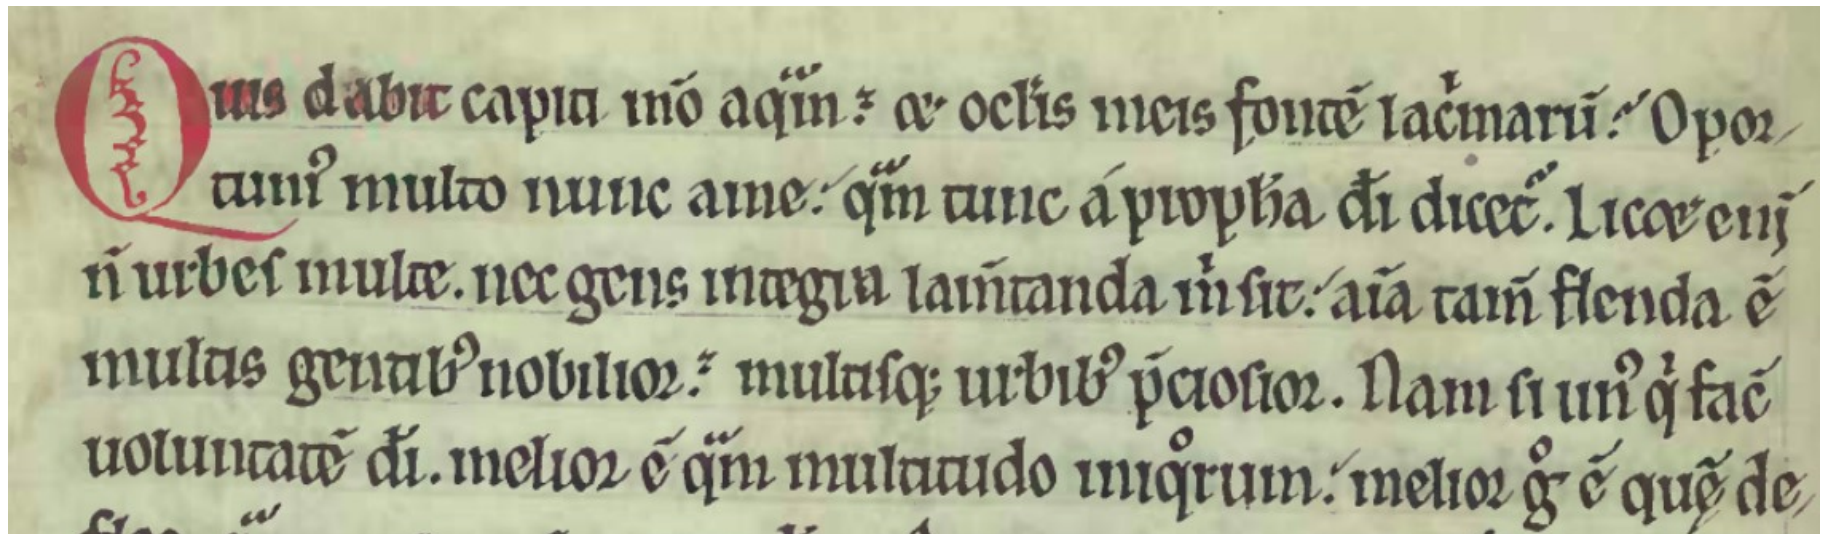 Quis dabit capiti mō aqᷓm ⁊ oclis meis fontē lac̍maꝝ̄. Opor/
tuniꝰ multo nunc a me. qᷓm tunc á ꝓpħa dī dicet᷑. Licet enī
n̄ urbeſ multe. nec gens integra lam̄tanda m̍ ſit. aīa tam̄ flenda ē
multis gentibꝰ nobilior. multiſq; urbibꝰ p̄cioſior. Nam ſi unꝰ q̍ fac̄
uoluntatē dī. melior ē qᷓm multitudo iniqͦrum. melior gͦ ē quę̄ de/